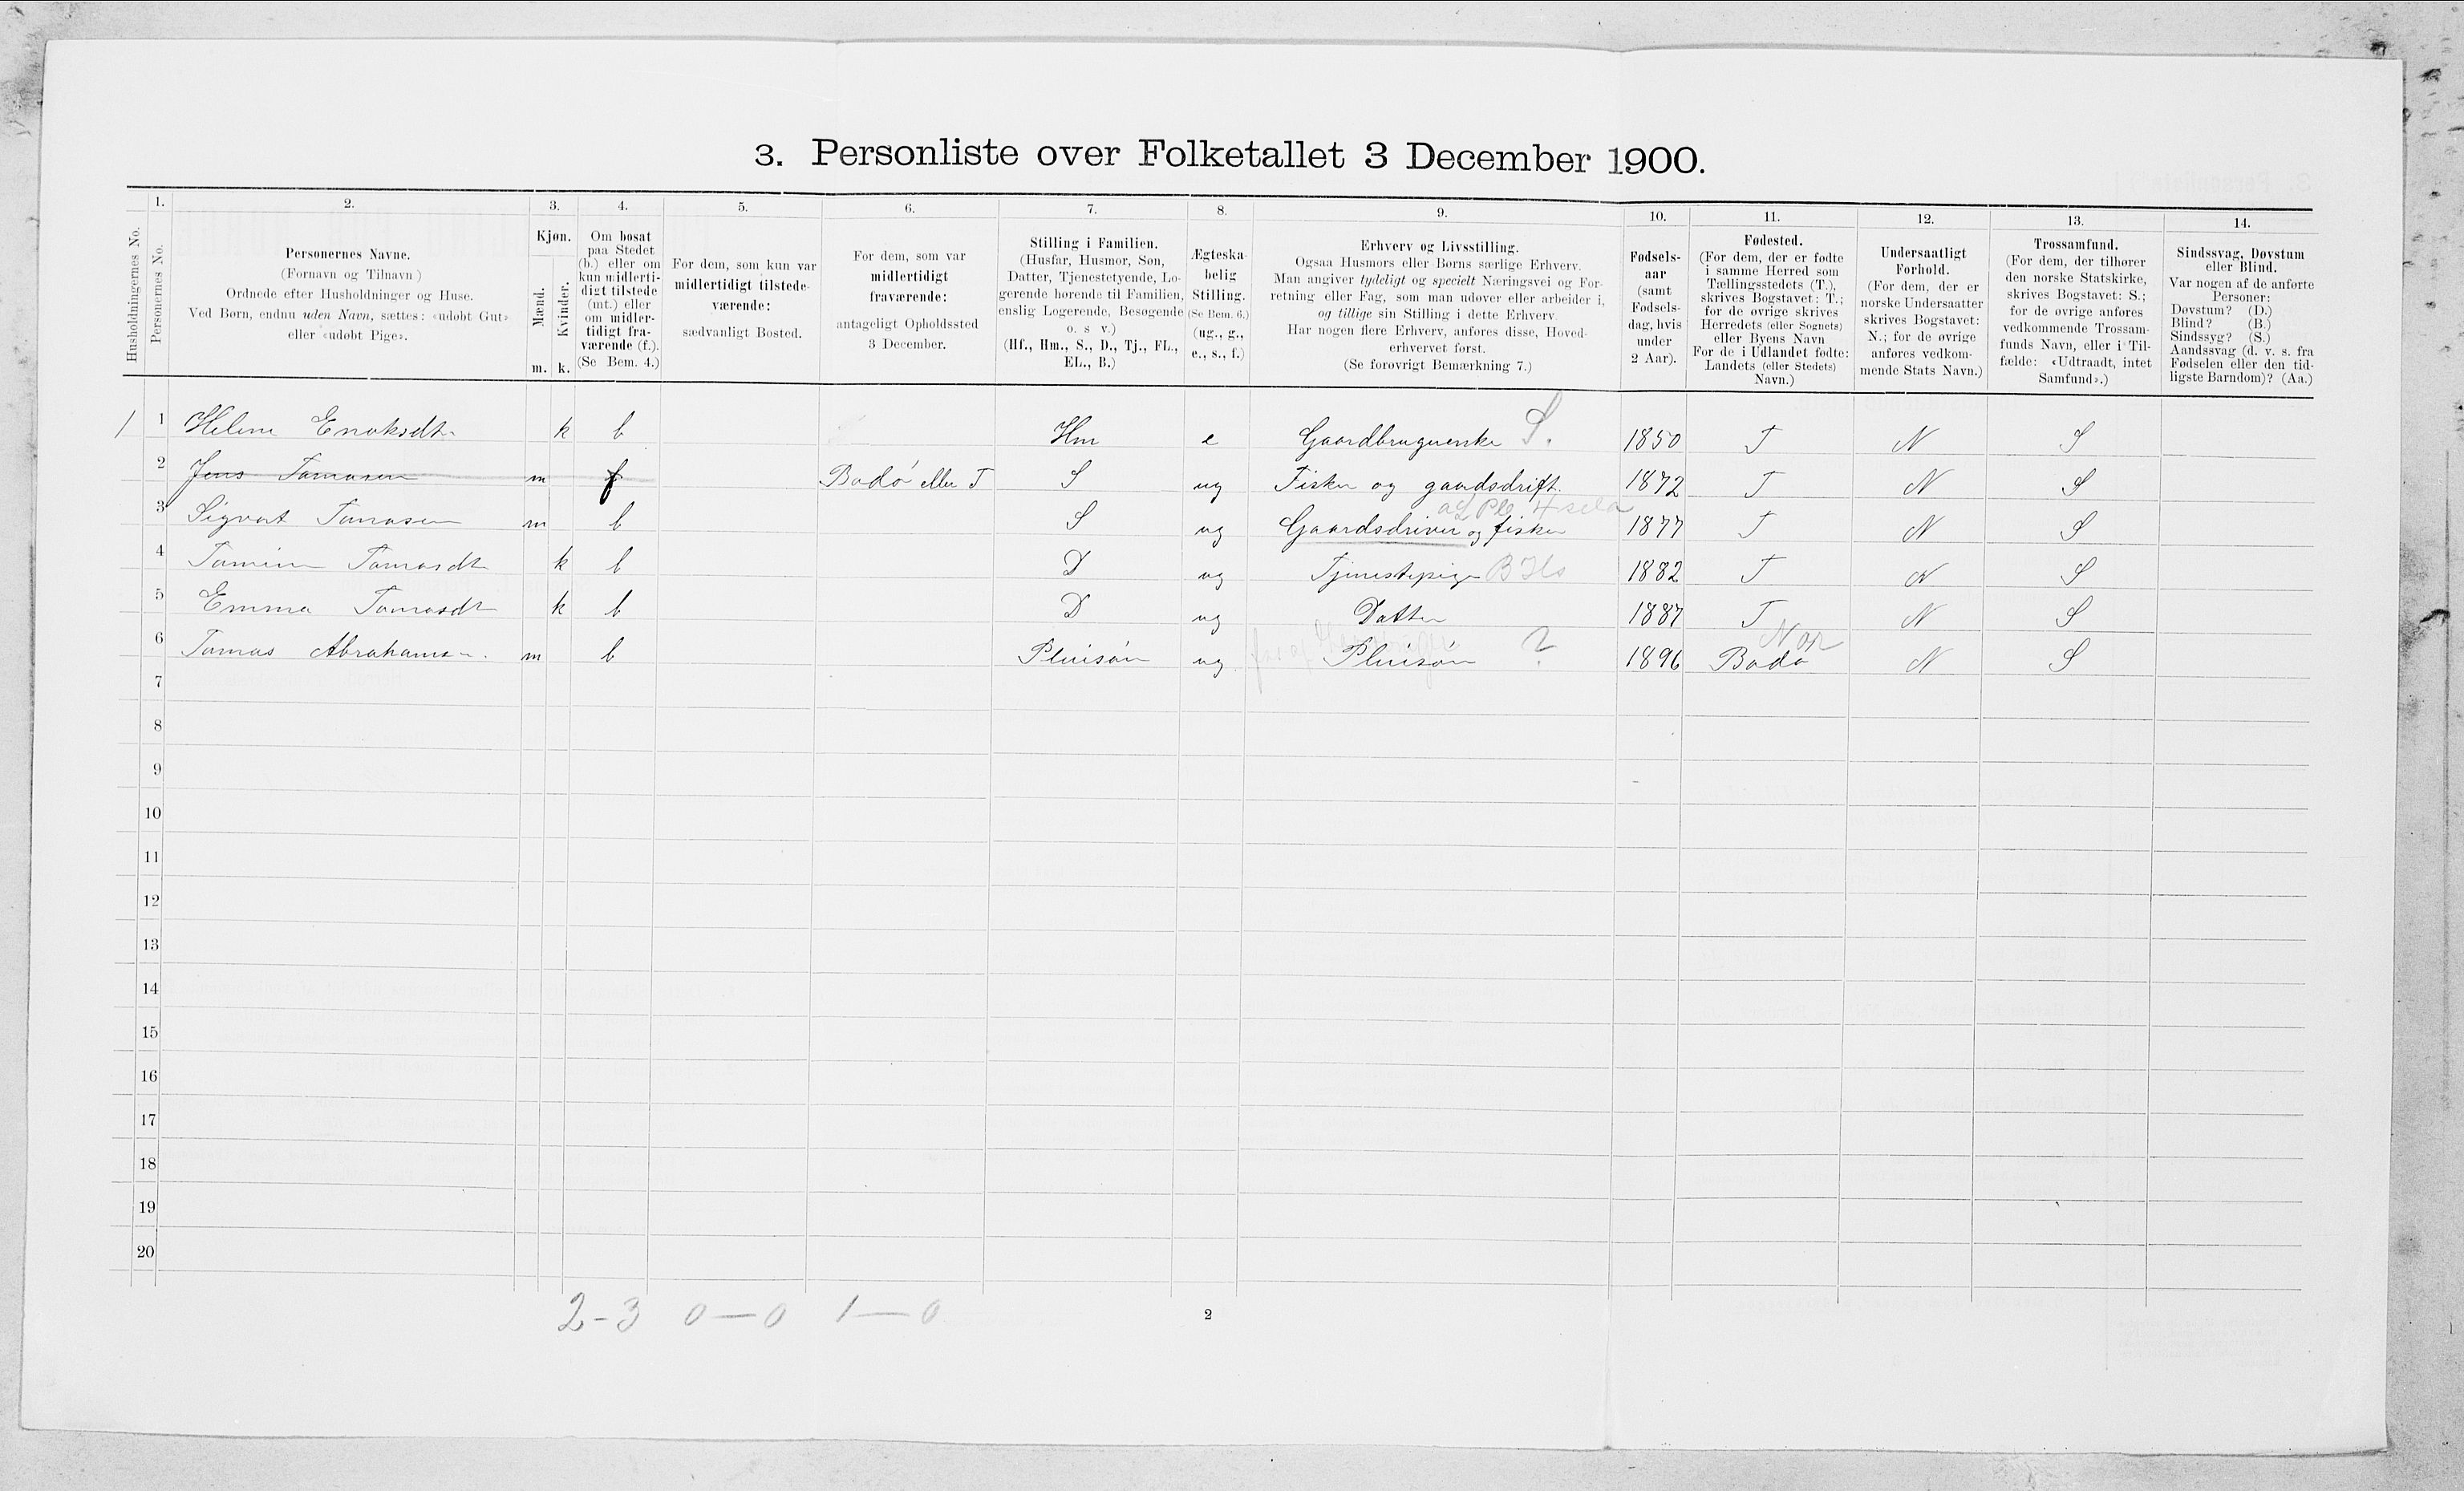 3. Personliste over Folketallet 3 December 1900.
1. 2. 3. 4. 5. 6. 7. 8. 9. 10. 11. 12. 13. 14.
Husholdningernes No.
Personernes No.
Personernes Navne.
(Fornavn og Tilnavn)
Ordnede efter Husholdninger og Huse.
Ved Børn, endnu uden Navn, sættes: «udøbt Gut»
eller «udøbt Pige».
Kjøn.
Mænd.
Kvinder.
m. k.
Om bosat
paa Stedet
(b.) eller om
kun midlerti-
digt tilstede
(mt.) eller
om midler-
tidigt fra-
værende (f.).
(Se Bem. 4.)
For dem, som kun var
midlertidigt tilstede-
værende:
sædvanligt Bosted.
For dem, som var
midlertidigt
fraværende:
antageligt Opholdssted
3 December.
Stilling i Familien.
(Husfar, Husmor, Søn,
Datter, Tjenestetyende, Lo-
gerende hørende til Familien,
enslig Logerende, Besøgende
o. s v.)
(Hf., Hm., S., D., Tj., FL.,
EL., B.)
Ægteska-
belig
Stilling.
(Se Bem. 6.)
(ug., g.,
e., s., f.)
Erhverv og Livsstilling.
Ogsaa Husmors eller Børns særlige Erhverv.
Man angiver tydeligt og specielt Næringsvei og For-
retning eller Fag, som man udøver eller arbeider i,
og tillige sin Stilling i dette Erhverv.
Har nogen flere Erhverv, anføres disse, Hoved-
erhvervet først.
(Se forøvrigt Bemærkning 7.)
Fødsels-
aar
(samt
Fødsels-
dag, hvis
under
2 Aar).
Fødested.
(For dem, der er fødte
i samme Herred som
Tællingsstedets (T.),
skrives Bogstavet: T.;
for de øvrige skrives
Herredets (eller Sognets)
eller Byens Navn
For de i Udlandet fødte:
Landets (eller Stedets)
Navn.)
Undersaatligt
Forhold.
(For dem, der er
norske Undersaatter
skrives Bogstavet:
N.; for de øvrige
anføres vedkom-
mende Stats Navn.)
Trossamfund.
(For dem, der tilhører
den norske Statskirke,
skrives Bogstavet: S.;
for de øvrige anføres
vedkommende Trossam-
funds Navn, eller i Til-
fælde: «Udtraadt, intet
Samfund».)
Sindssvag, Døvstum
eller Blind.
Var nogen af de anførte
Personer:
Døvstum? (D.)
Blind? (B.)
Sindssyg? (S.)
Aandssvag (d. v. s. fra
Fødselen eller den tid-
ligste Barndom)? (Aa.)
1 1 Helene Enoksdtr. k b Hm e Gaardbrugerenke S. 1850 T N S
2 Jens Tomasen m f Bodø eller T S ug Fisker og gaardsdrift. 1872 T N S
3 Sigvart Tomasen m b S ug Gaardsdriver og fisker 1877 T N S
4 Tomine Tomasdtr k b D ug Tjenestepige B Hs 1882 T N S
5 Emma Tomasdtr k b D ug Datter 1887 T N S
6 Tomas Abrahamsen. m b Pleiesøn ug. Pleiesøn ? 1896 Bodø N S
7
8
9
10
11
12
13
14
15
16
17
18
19
20
2-3 0—0 1—0
2